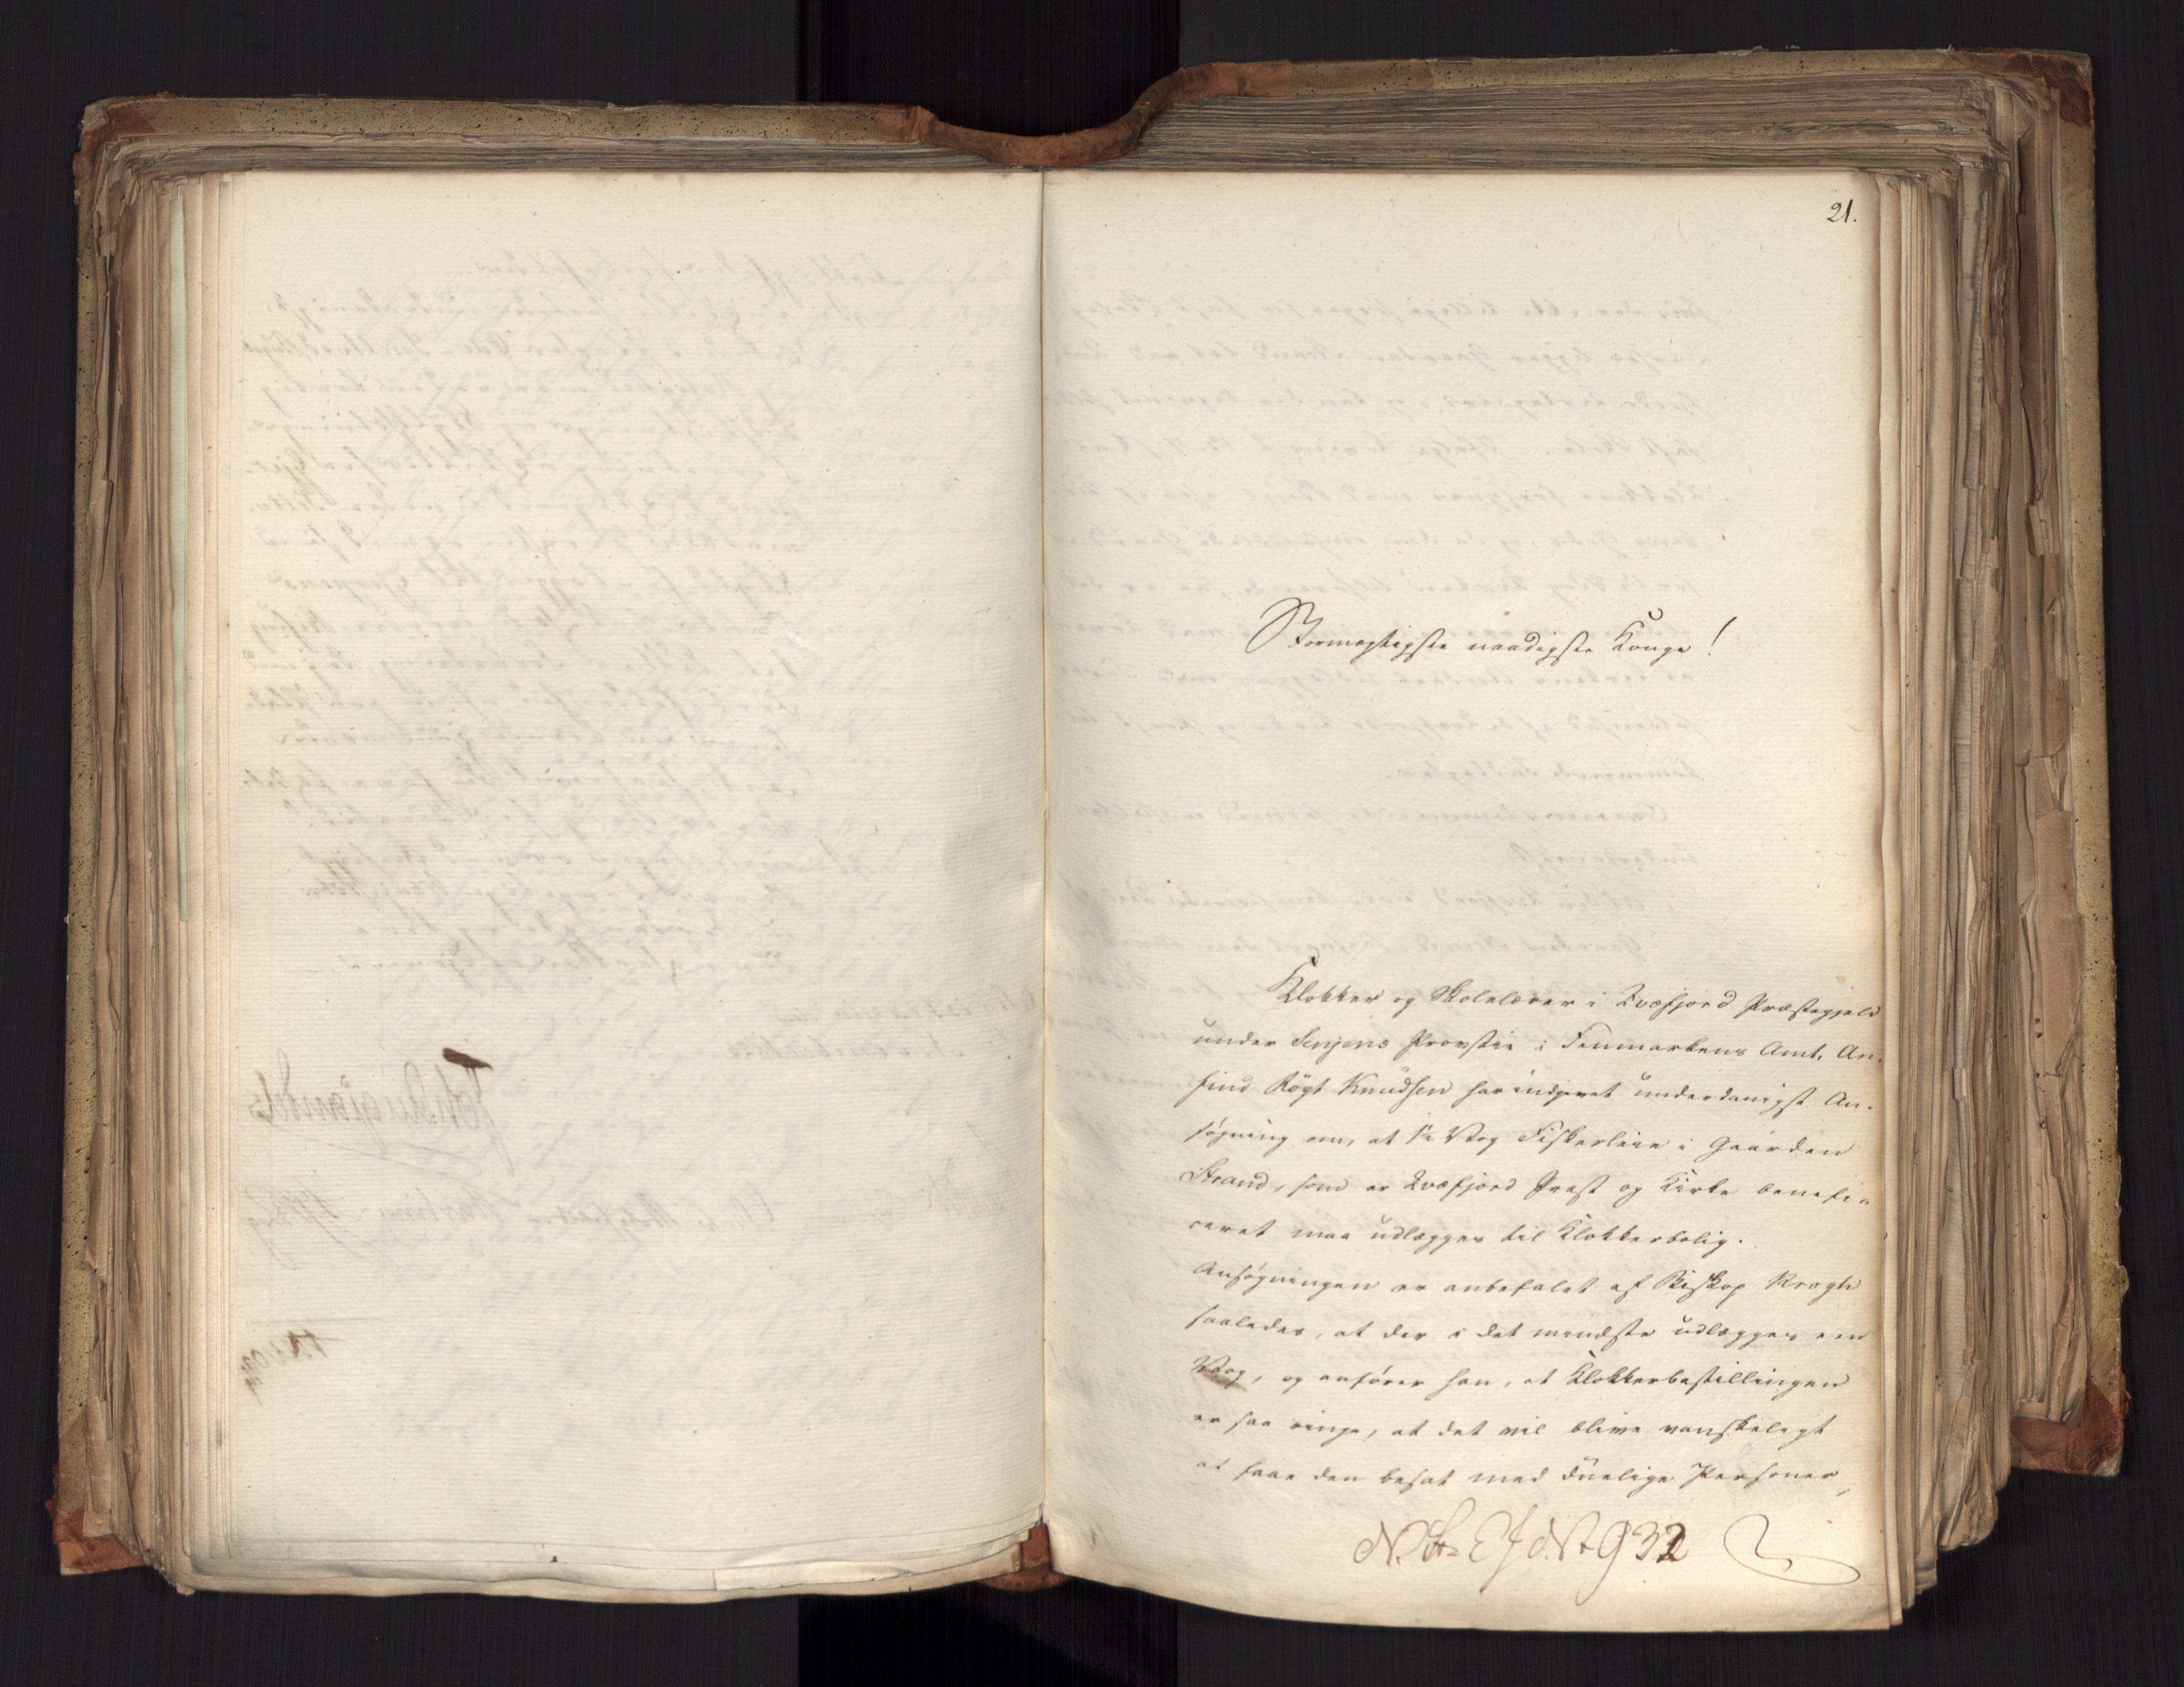 21.
Stormægtigste naadigste Konge!
Klokker og Skolelærer i Qvæfjord Præstegjeld
under Senjens Provstie i Finmarkens Amt, An-
find Rögt Knudsen har indgivet underdanigst An-
søgning om, at 1½ Vog Fiskerleie i Gaarden
Strand, som er Qvæfjord Præst og Kirke benefi-
ceret maa udlægges til Klokkerbolig.
Ansøgningen er anbefalet af Biskop Krogh
saaledes, at der i det mindste udlægges een
Vog, og anfører han, at Klokkerbestillingen
er saa ringe, at det vil blive vanskeligt
at faae den besat med duelige Personer,
932